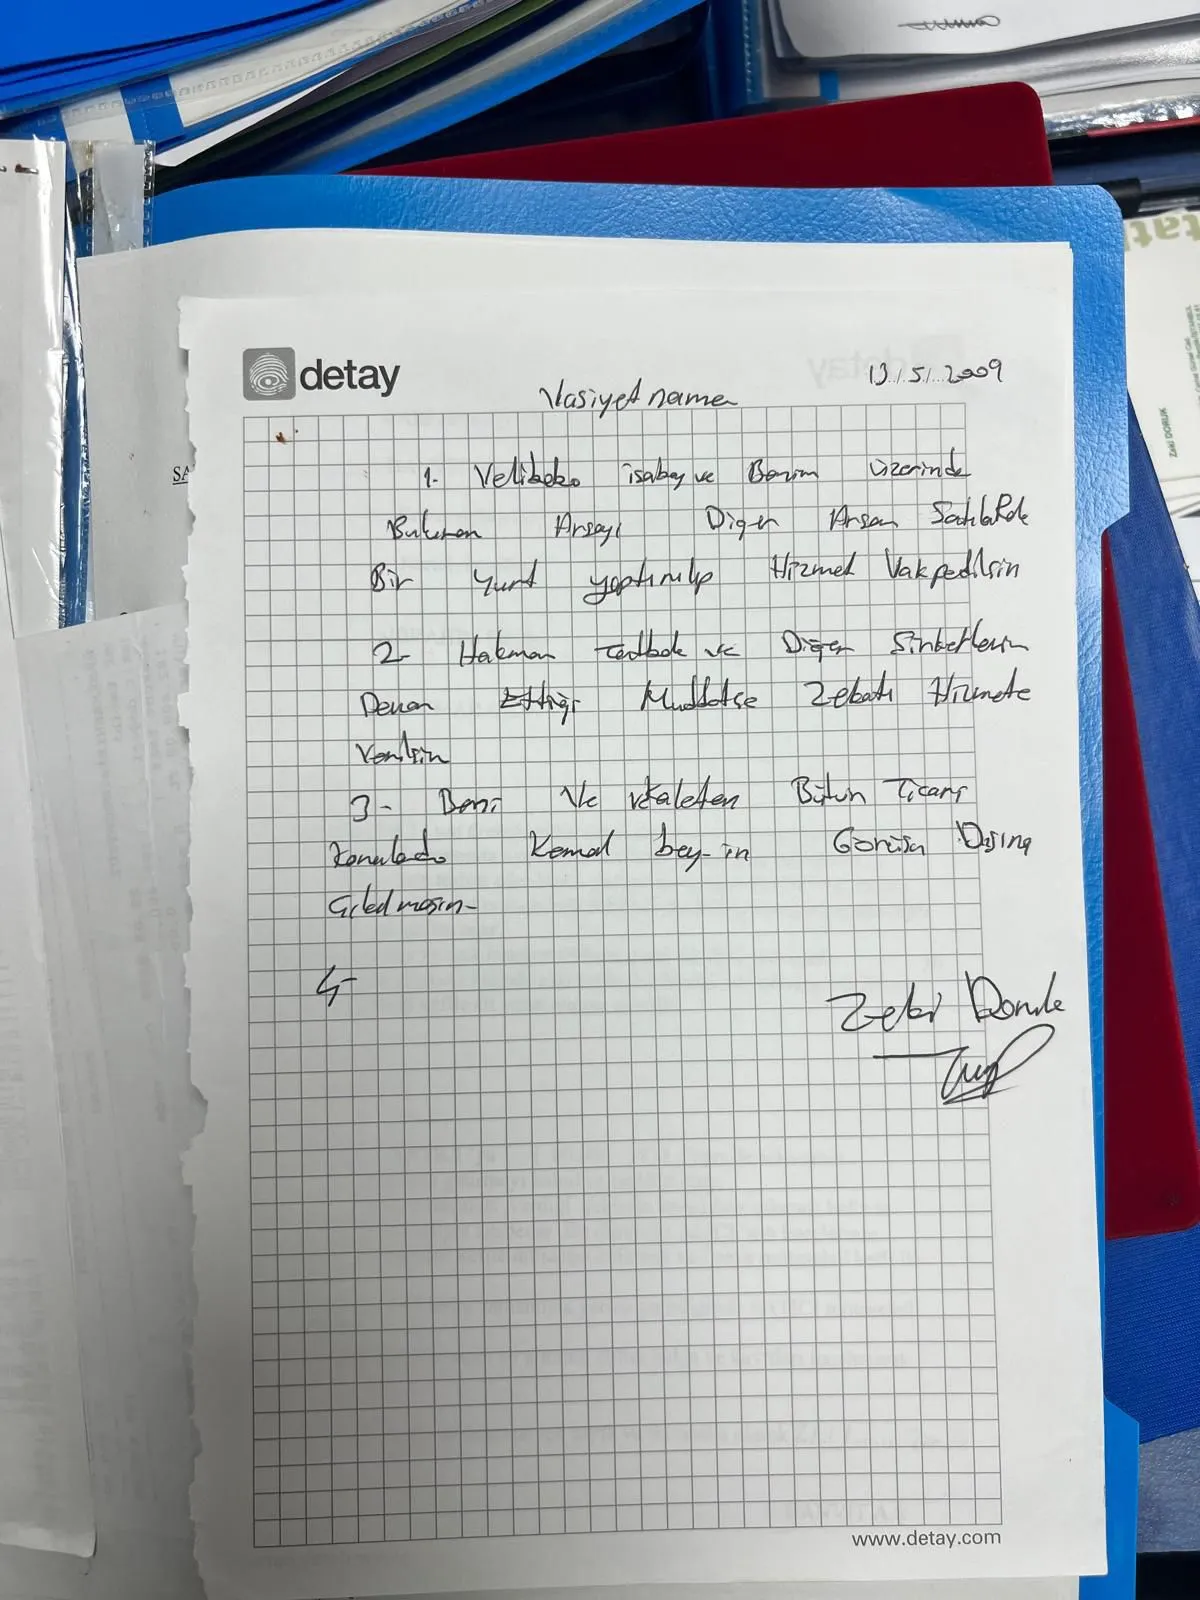 detay
13/5/2009
Vasiyet name
1- Velibaba isabey ve Benim üzerinde
Bulunan Arsayı Diğer Arsam Satılarak
Bir Yurt yaptırılıp Hizmet Vakfedilsin
2- Hakman ve Diğer Şirketlerin
Devam Ettiği Müddetçe Zekatı Hizmete
Verilsin
3- Beni Ve vekaleten Bütün Ticari
Konularda Kemal bey-in Görüşü Dışına
Çıkılmasın-
4-
Zeki Doruk
www.detay.com
SA
Zeki DORUK